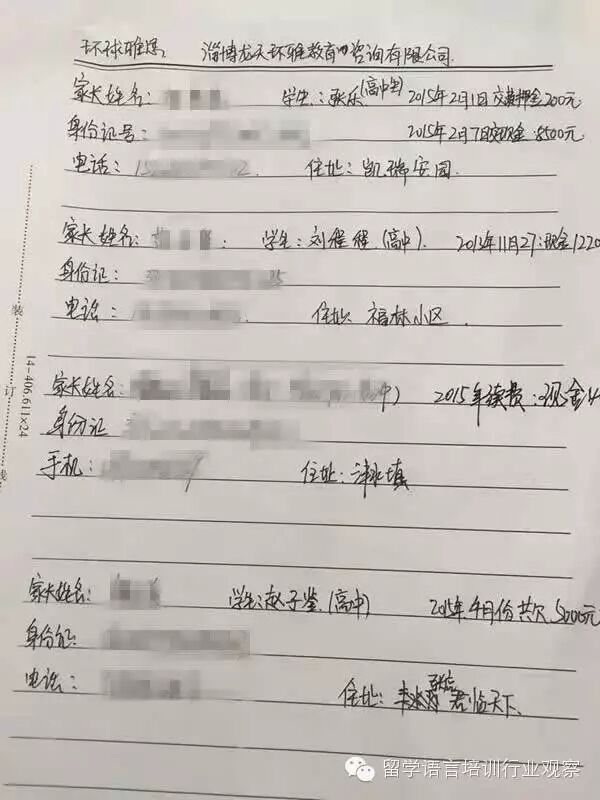 环球雅思 淄博龙天环雅教育咨询有限公司
家长姓名: 学生:张乐(高中生) 2015年2月1日交押金200元
身份证号 2015年2月7日交现金8500元
电话: 住址:凯瑞安园
家长姓名: 学生:刘程程(高中). 2013年11月27:现金1220
身份证:
电话: 住址 福林小区
家长姓名: 中) 2015年续费:现金
身份证
手机: 住址:
家长姓名: 学生:赵子鉴(高中) 2015年4月份共欠5000元
身份证:
电话: 住址: 君临天下
装 订 线
14-406.611×24
留学语言培训行业观察